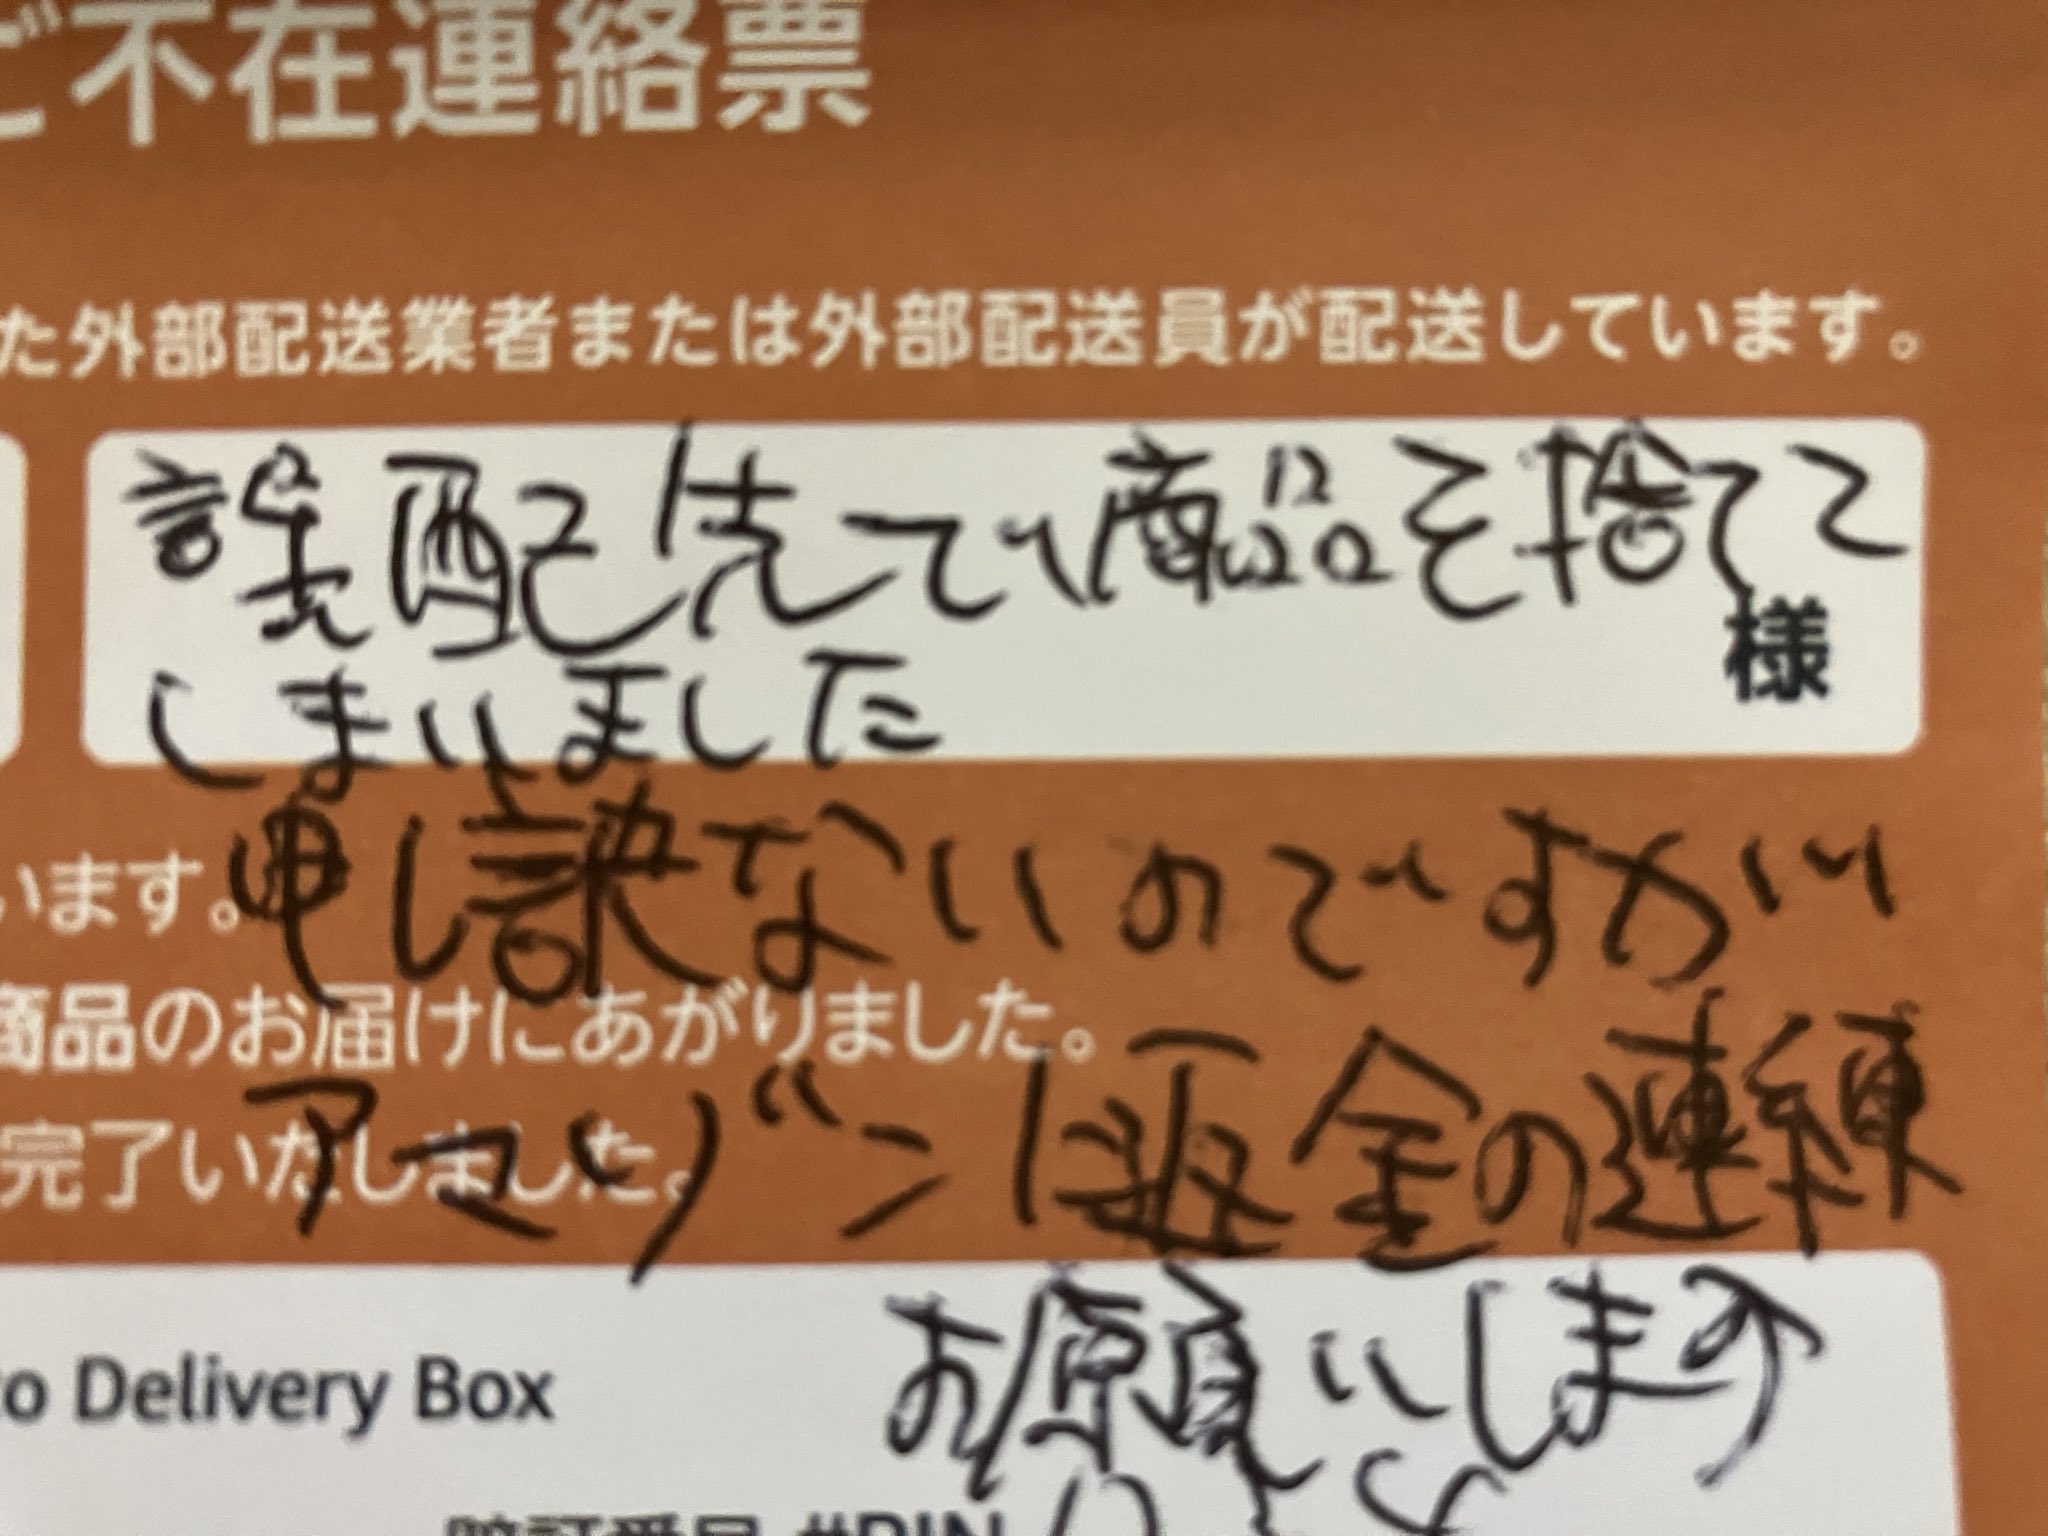 ご不在連絡票
た外部配送業者または外部配送員が配送しています。
誤配先で商品を捨てて
様
しまいました
申し訳ないのですが
います。
商品のお届けにあがりました。
アマゾンに返金の連練
完了いたしました。
お願いします
to Delivery Box
暗証番号 #PIN